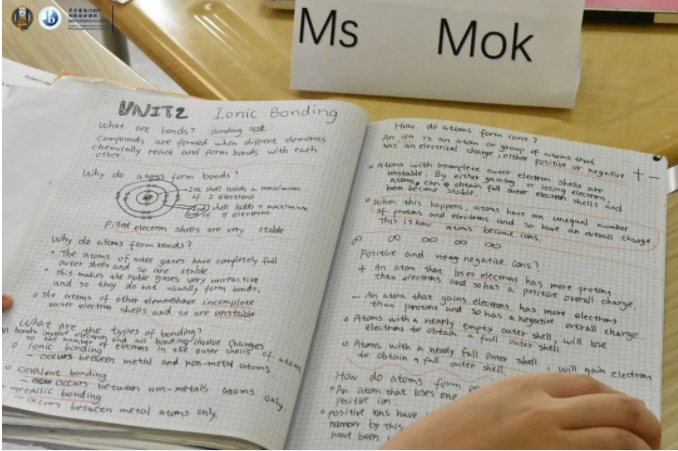 Ms Mok
UNIT2 Ionic Bonding
What are bonds? Bonding
Compounds are formed when different elements
chemically react and form bonds with each
other.
Why do atoms form bonds?
1st shell holds a maximum
of 2 electrons
shell holds a maximum
of 8 electrons
Filled electron shells are very stable
Why do atoms form bonds?
• The atoms of noble gases have completely full
outer shells and so are stable.
• this makes the noble gases very unreactive
and so they do not usually form bonds.
• The atoms of other elements have incomplete
outer electron shells and so are unstable
What are the types of bonding?
bonds involve electrons and all bonding involve changes
to the number of electrons in the outer shells of atoms
○ Ionic bonding
- occurs between metal and non-metal atoms.
○ covalent bonding
- occurs between non-metals atoms only.
metallic bonding
- occurs between metal atoms only.
How do atoms form ions?
An ion is an atom or group of atoms that
has an electrical charge, either positive or negative
+ -
• Atoms with incomplete outer electron shells are
unstable. By either gaining or losing electrons,
atoms can obtain full outer electron shells and
become stable.
• When this happens, atoms have an unequal number
of protons and electrons and so have an overall charge
This is how atoms become ions.
∞ ∞ ∞ ∞ ∞
Positive and negative ions?
+ An atom that loses electrons has more protons
than electrons and so has a positive overall charge.
- An atom that gains electrons has more electrons
than protons and so has a negative overall charge
• Atoms with a nearly empty outer shell, will lose
electrons to obtain a full outer shell
• Atoms with a nearly full outer shell, will gain electrons
to obtain a full outer shell.
How do atoms form
• An atom that loses one
positive ion.
• positive ions have
number by this
have been